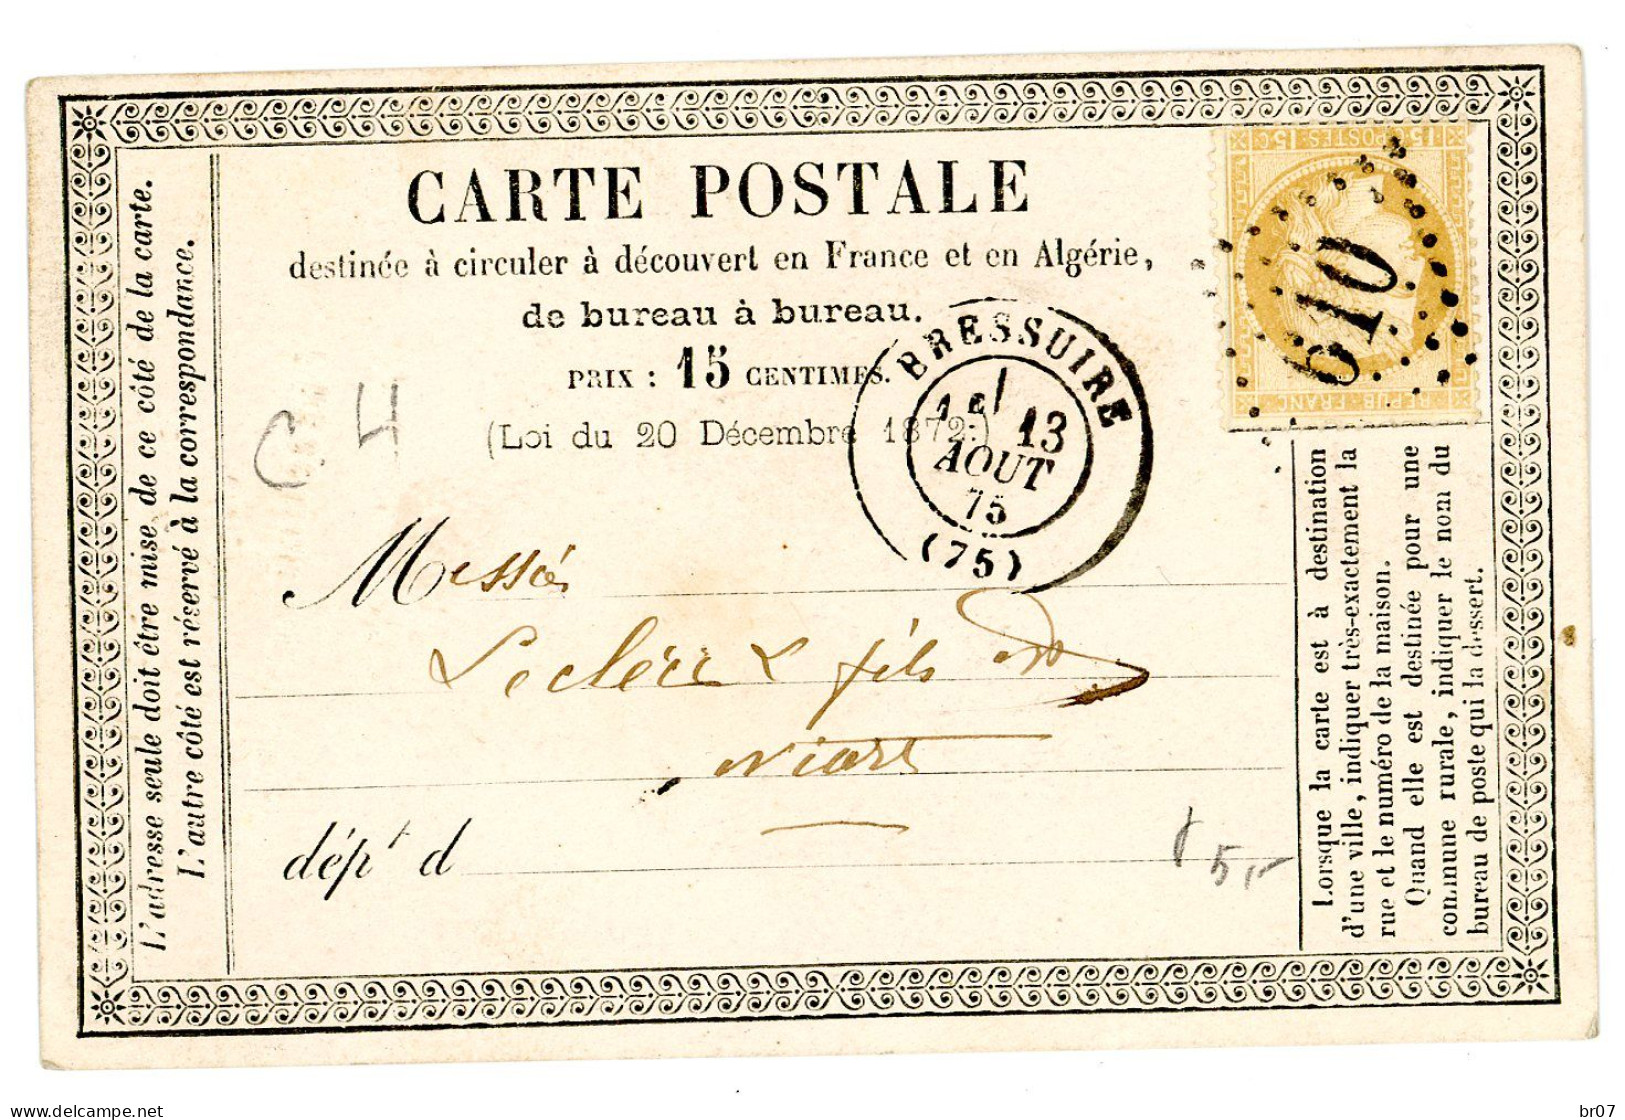 CARTE POSTALE
destinée à circuler à découvert en France et en Algérie,
de bureau à bureau.
PRIX : 15 CENTIMES.
(Loi du 20 Décembre 1872.)
L'adresse seule doit être mise de ce côté de la carte.
L'autre côté est réservé à la correspondance.
C 4
15 C. POSTES 15 C.
REPUB. FRANC.
610
BRESSUIRE
1E/ 13
AOUT
75
(75)
Messrs
Leclerc & fils
Niort
dépt d
5
Lorsque la carte est à destination
d'une ville, indiquer très-exactement la
rue et le numéro de la maison.
Quand elle est destinée pour une
commune rurale, indiquer le nom du
bureau de poste qui la dessert.
delcampe.net
br07